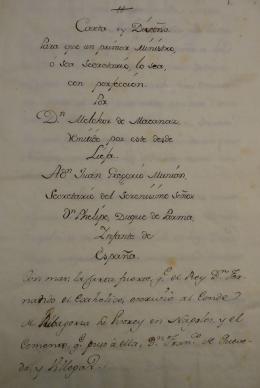 Carta, y Diseño,
Para que un primer Ministro,
o sea Secretario, lo sea,
con perfección.
Por
Dn. Melchor de Macanaz
remitido por este desde
Lieja.
A Dn. Juan Gregorio Muniain
Secretario del Serenisimo Señor
Dn. Phelipe, Duque de Parma,
Infante de
España.
Con mas la carta que el Rey Dn. Fer-
nando el Catholico, escrivió al Conde
de Ribagorza Virrey en Napoles, y el
Comento, q. puso a ella, Dn. Franco. de Queve-
do, y Villegas